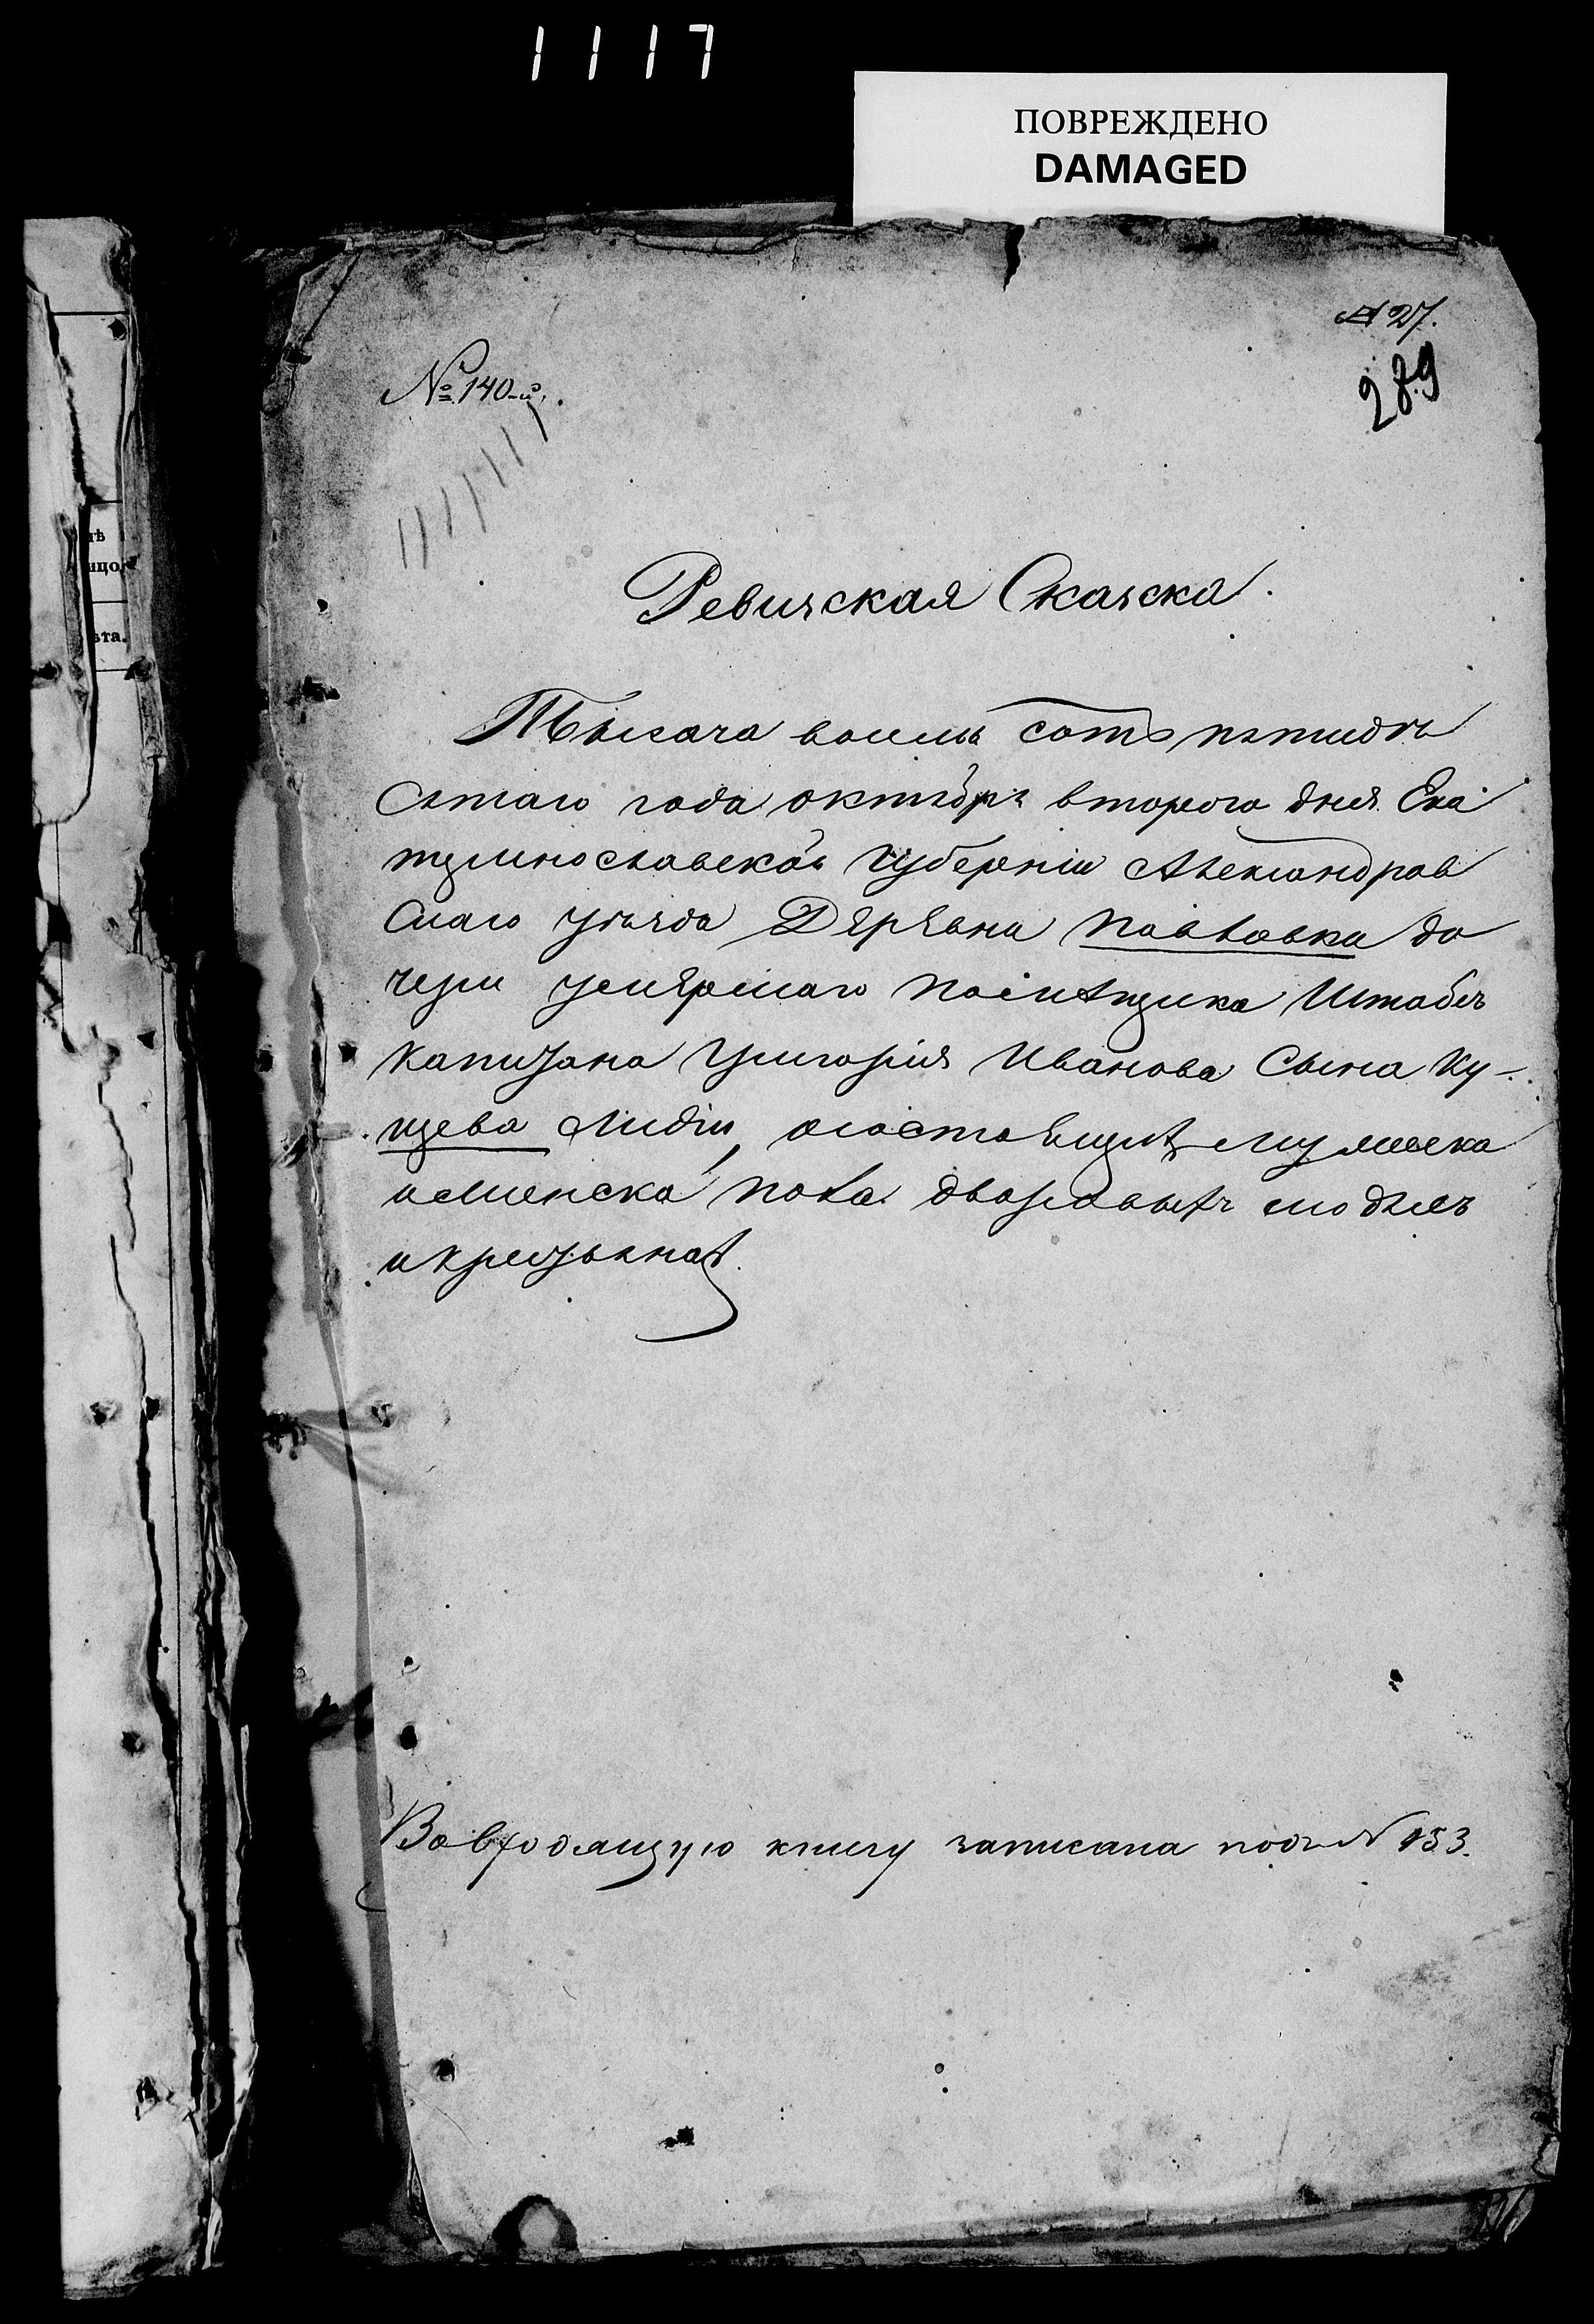 1117
ПОВРЕЖДЕНО
DAMAGED
№ 27.
289
№ 140-й.
тѣ
ицо.
ѣта.
Ревизская Сказска.
Тысеча восемь сотъ пятидѣ
сятаго года октября второго дня Ека
теринославской Губерніи Александров
скаго уѣзда Деревна Павловка до
чери умершаго помѣщика Штабсъ
капитана Григорія Иванова Сына Ку-
щева Лидіи, осостоящихъ мужеска
и женска пола дворовыхъ людѣй
и крестьянахъ
Во входящую книгу записана подъ № 153.